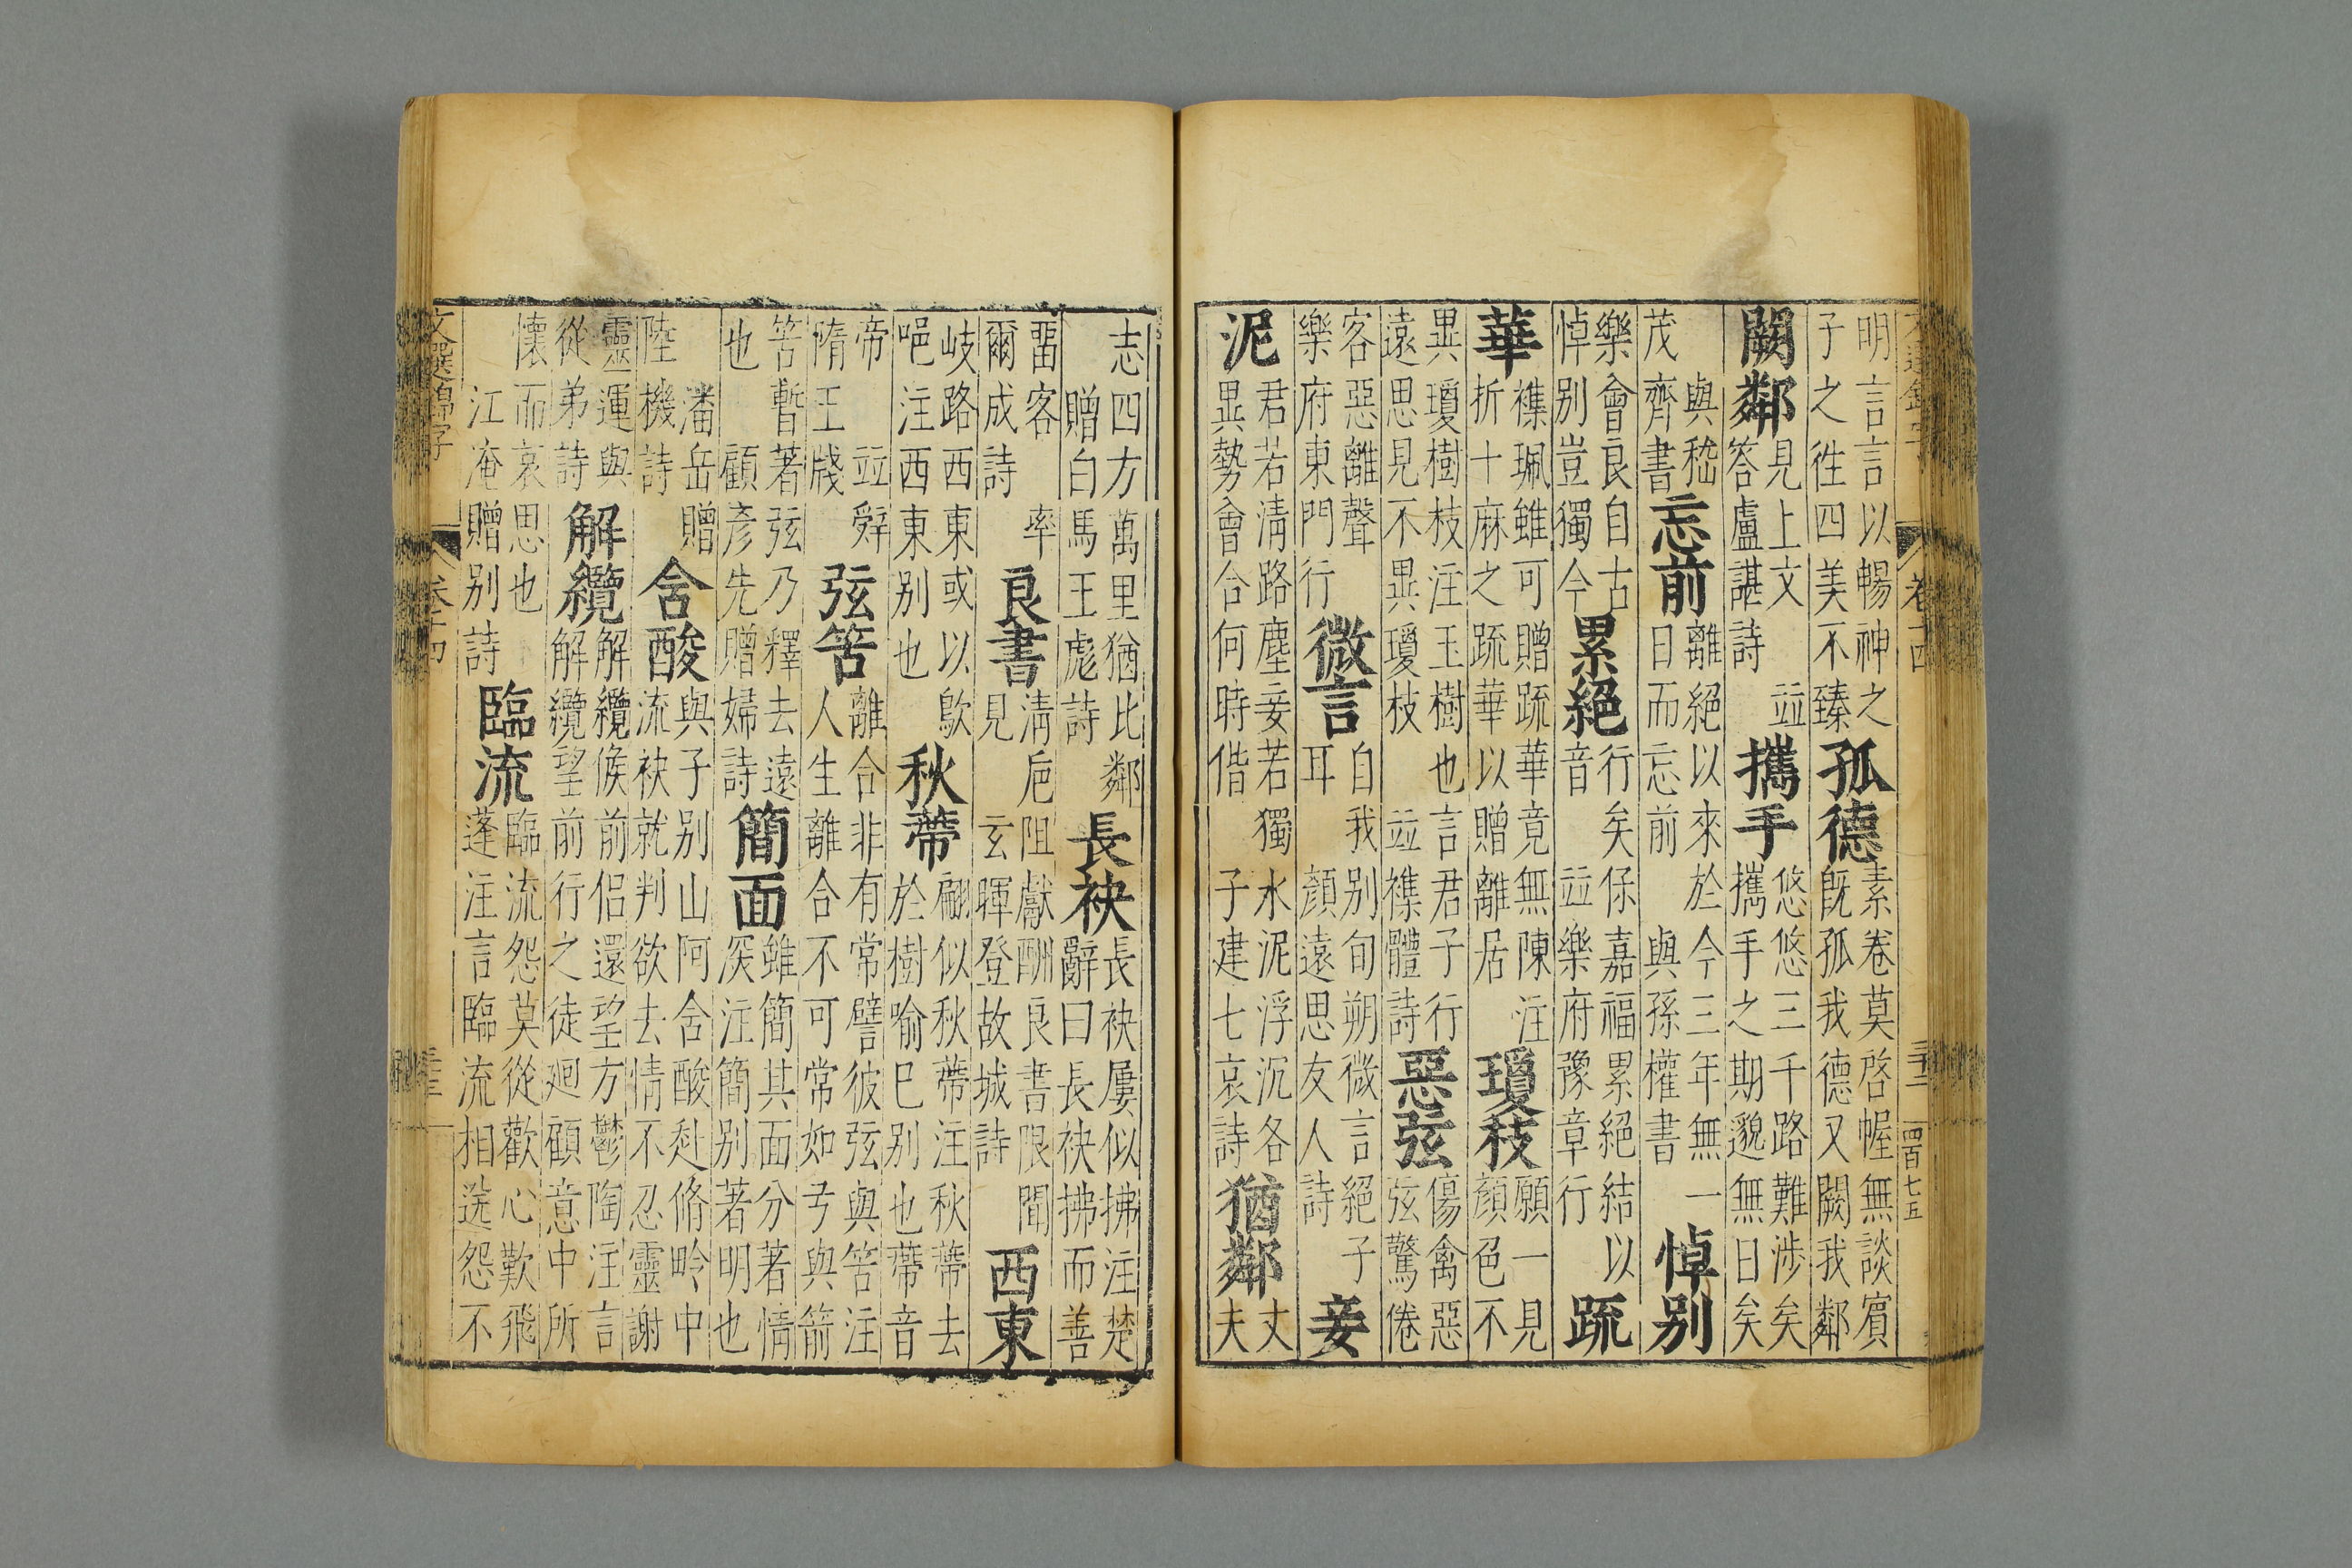 明言言以暢神之
子之徃四美不臻
孤德
素卷莫啓幄無談賔
旣孤我德又闕我鄰
闕鄰
見上文 竝
答盧諶詩
攜手
悠悠三千路難涉矣
攜手之期邈無日矣
與嵇
茂齊書
忘前
離絕以來於今三年無一
日而忘前 與孫權書
悼别
樂會良自古
悼别豈獨今
累絕
行矣保嘉福累絕結以
音 竝樂府豫章行
疏
華
襍珮雖可贈疏華竟無陳注
折十麻之疏華以贈離居
瓊枝
願一見
顏色不
異瓊樹枝注玉樹也言君子行
遠思見不異瓊枝 竝襍體詩
惡弦
傷禽惡
弦驚倦
客惡離聲
樂府東門行
微言
自我别旬朔微言絕子
耳 顏遠思友人詩
妾
泥
君若淸路塵妾若獨水泥浮沉各
異勢會合何時偕 子建七哀詩
猶鄰
丈
夫
卷十四
四百七五
志四方萬里猶比鄰
贈白馬王彪詩
長袂
長袂屢似拂注楚
辭曰長袂拂而善
畱客 率
爾成詩
良書
淸巵阻獻酬良書限聞
見 玄暉登故城詩
西東
岐路西東或以歍
唈注西東别也
秋蔕
翩似秋蔕注秋蔕去
於樹喻巳别也蔕音
帝 竝辤
隋王牋
弦筈
離合非有常譬彼弦與筈注
人生離合不可常如弓與箭
筈暫著弦乃釋去遠
也 顧彥先贈婦詩
簡面
雖簡其面分著情
深注簡别著明也
潘岳贈
陸機詩
舍酸
與子别山阿舍酸赴脩畛中
流袂就判欲去情不忍靈謝
靈運與
從弟詩
解纜
解纜候前侶還望方鬱陶注言
解纜望前行之徒廻顧意中所
懷而哀思也
江淹贈别詩
臨流
臨流怨莫從歡心歎飛
蓬注言臨流相送怨不
文選錦字
卷十四